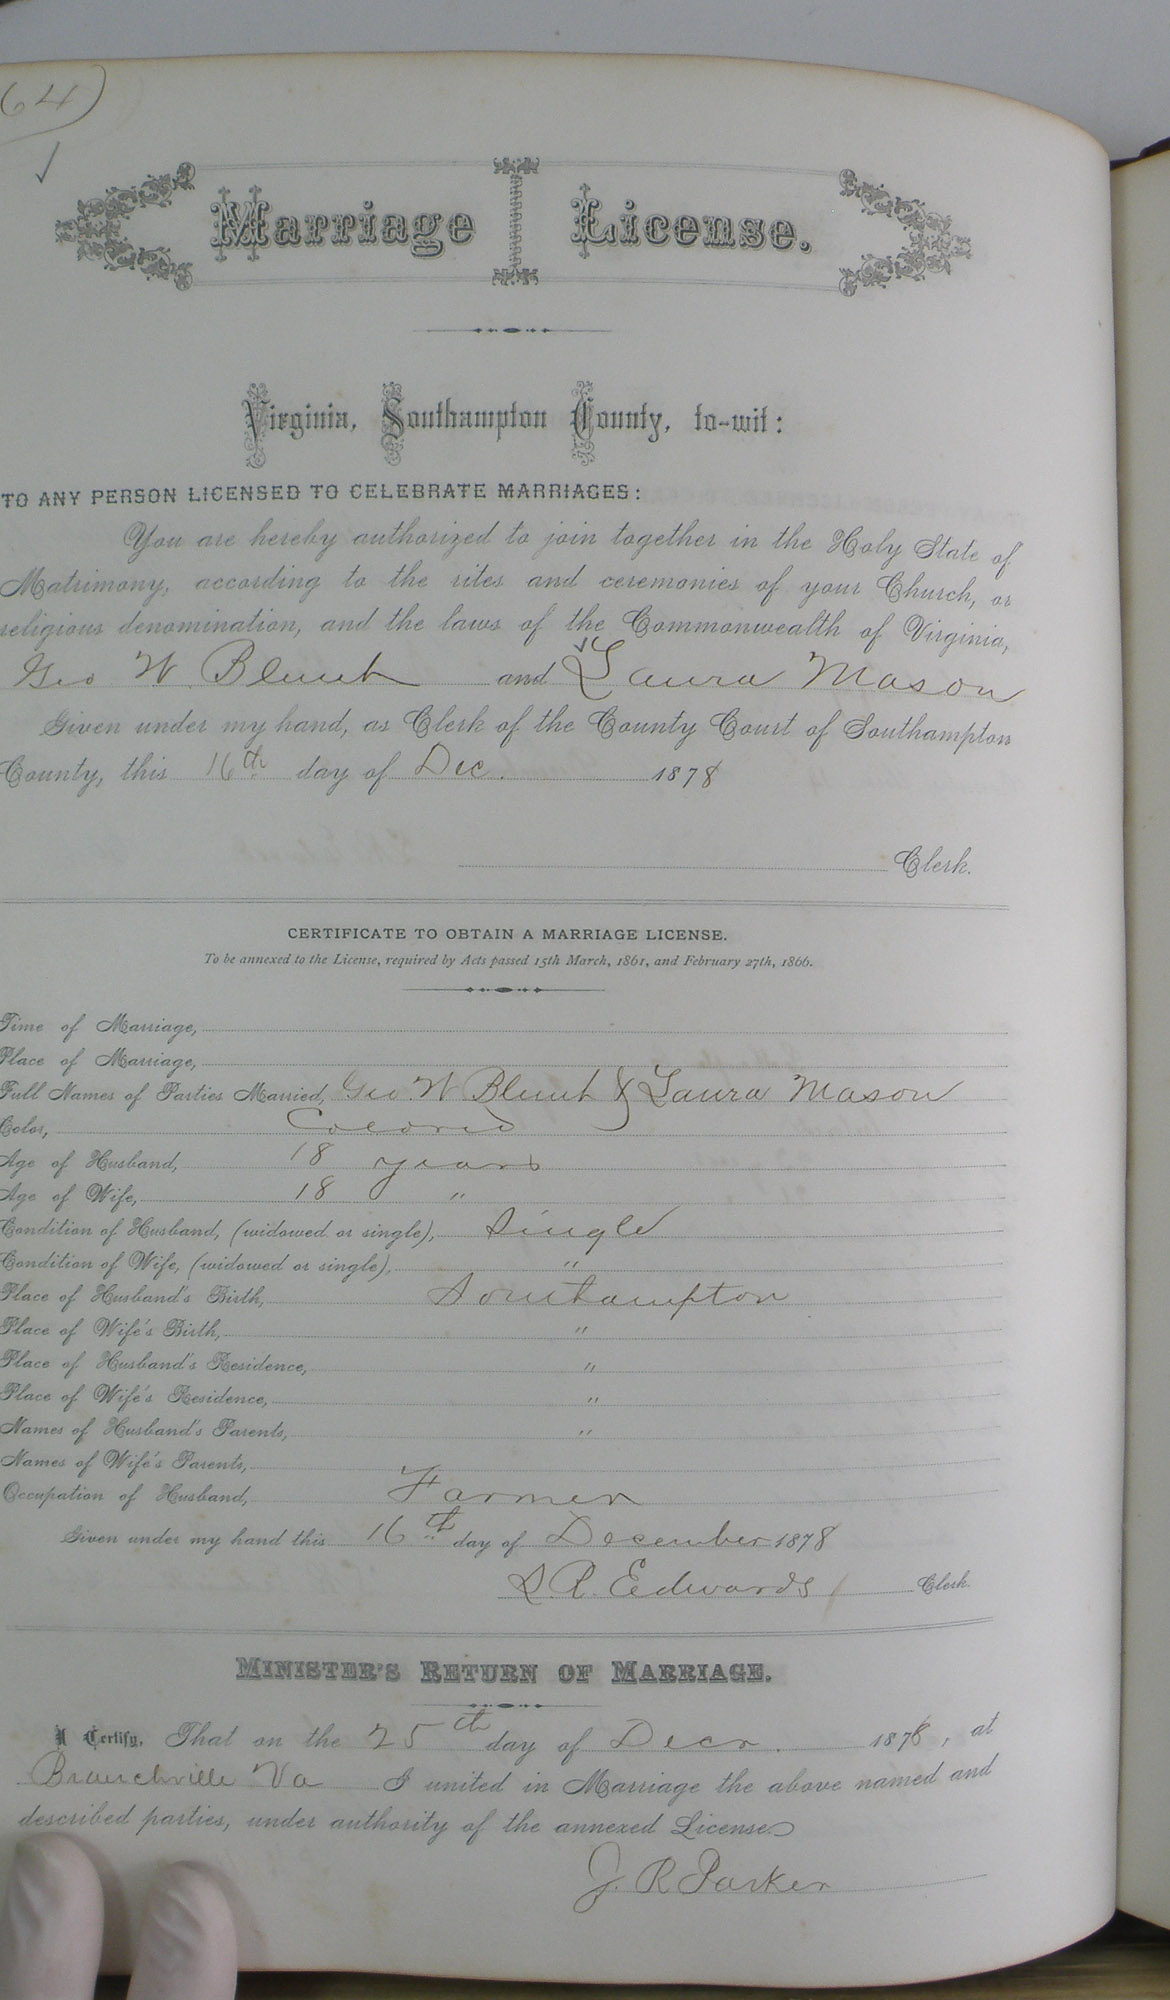 64)
Marriage License.
Virginia, Southampton County, to-wit:
TO ANY PERSON LICENSED TO CELEBRATE MARRIAGES:
You are hereby authorized to join together in the Holy State of
Matrimony, according to the rites and ceremonies of your Church, or
religious denomination, and the laws of the Commonwealth of Virginia,
Geo W. Blunt and Laura Mason
Given under my hand, as Clerk of the County Court of Southampton
County, this 16th day of Dec. 1878
Clerk.
CERTIFICATE TO OBTAIN A MARRIAGE LICENSE.
To be annexed to the License, required by Acts passed 15th March, 1861, and February 27th, 1866.
Time of Marriage,
Place of Marriage,
Full Names of Parties Married, Geo. W Blunt & Laura Mason
Color, Colored
Age of Husband, 18 years
Age of Wife, 18 "
Condition of Husband, (widowed or single), Single
Condition of Wife, (widowed or single), "
Place of Husband's Birth, Southampton
Place of Wife's Birth, "
Place of Husband's Residence, "
Place of Wife's Residence, "
Names of Husband's Parents, "
Names of Wife's Parents,
Occupation of Husband, Farmer
Given under my hand this 16th day of December 1878
Edwards Clerk.
MINISTER'S RETURN OF MARRIAGE.
I Certify, That on the 25th day of Decr. 1878, at
Branchville Va I united in Marriage the above named and
described parties, under authority of the annexed License
J. R Parker